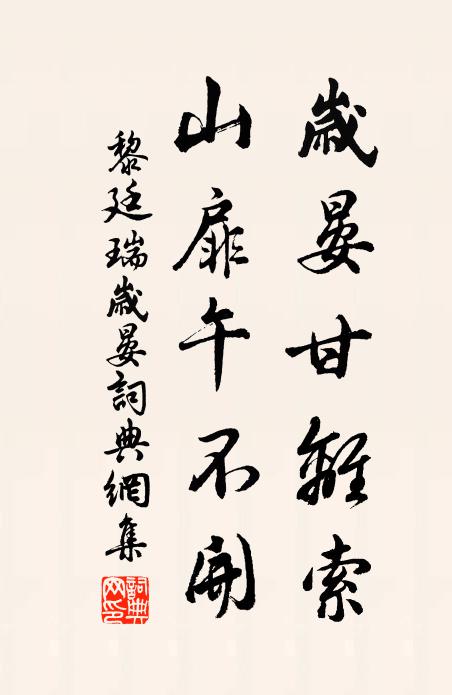 歲晏甘離索
山扉午不開
黎廷瑞歲晏詞典網集
詞典網印